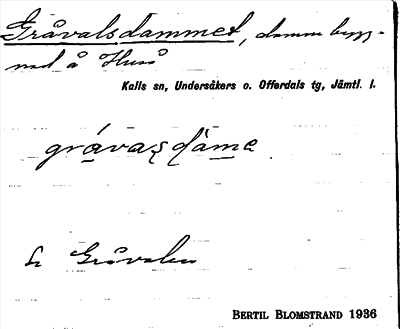 Gråvalsdammet, dammbygg-
nad å Huså
Kalls sn, Undersåkers o. Offerdals tg, Jämtl. l.
Gråvalen
BERTIL BLOMSTRAND 1936